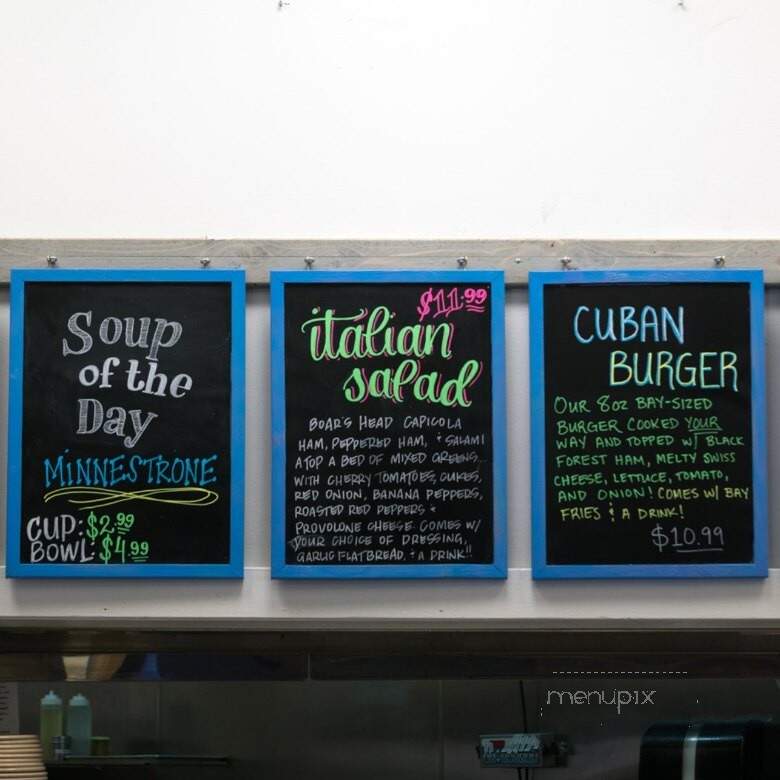 Soup
of the
Day
MINNESTRONE
CUP: $2.99
BOWL: $4.99
$11.99
italian
salad
BOAR'S HEAD CAPICOLA
HAM, PEPPERED HAM, & SALAMI
ATOP A BED OF MIXED GREENS...
WITH CHERRY TOMATOES, CUKES,
RED ONION, BANANA PEPPERS,
ROASTED RED PEPPERS &
PROVOLONE CHEESE. COMES W/
YOUR CHOICE OF DRESSING,
GARLIC FLATBREAD, & A DRINK!!
CUBAN
BURGER
OUR 8OZ BAY-SIZED
BURGER COOKED YOUR
WAY AND TOPPED W/ BLACK
FOREST HAM, MELTY SWISS
CHEESE, LETTUCE, TOMATO,
AND ONION! COMES W/ BAY
FRIES & A DRINK!
$10.99
menupix